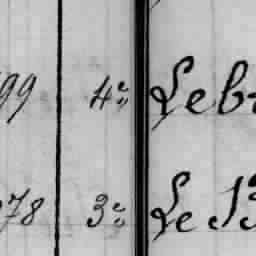 99 4º Leb
78 3º Le 13